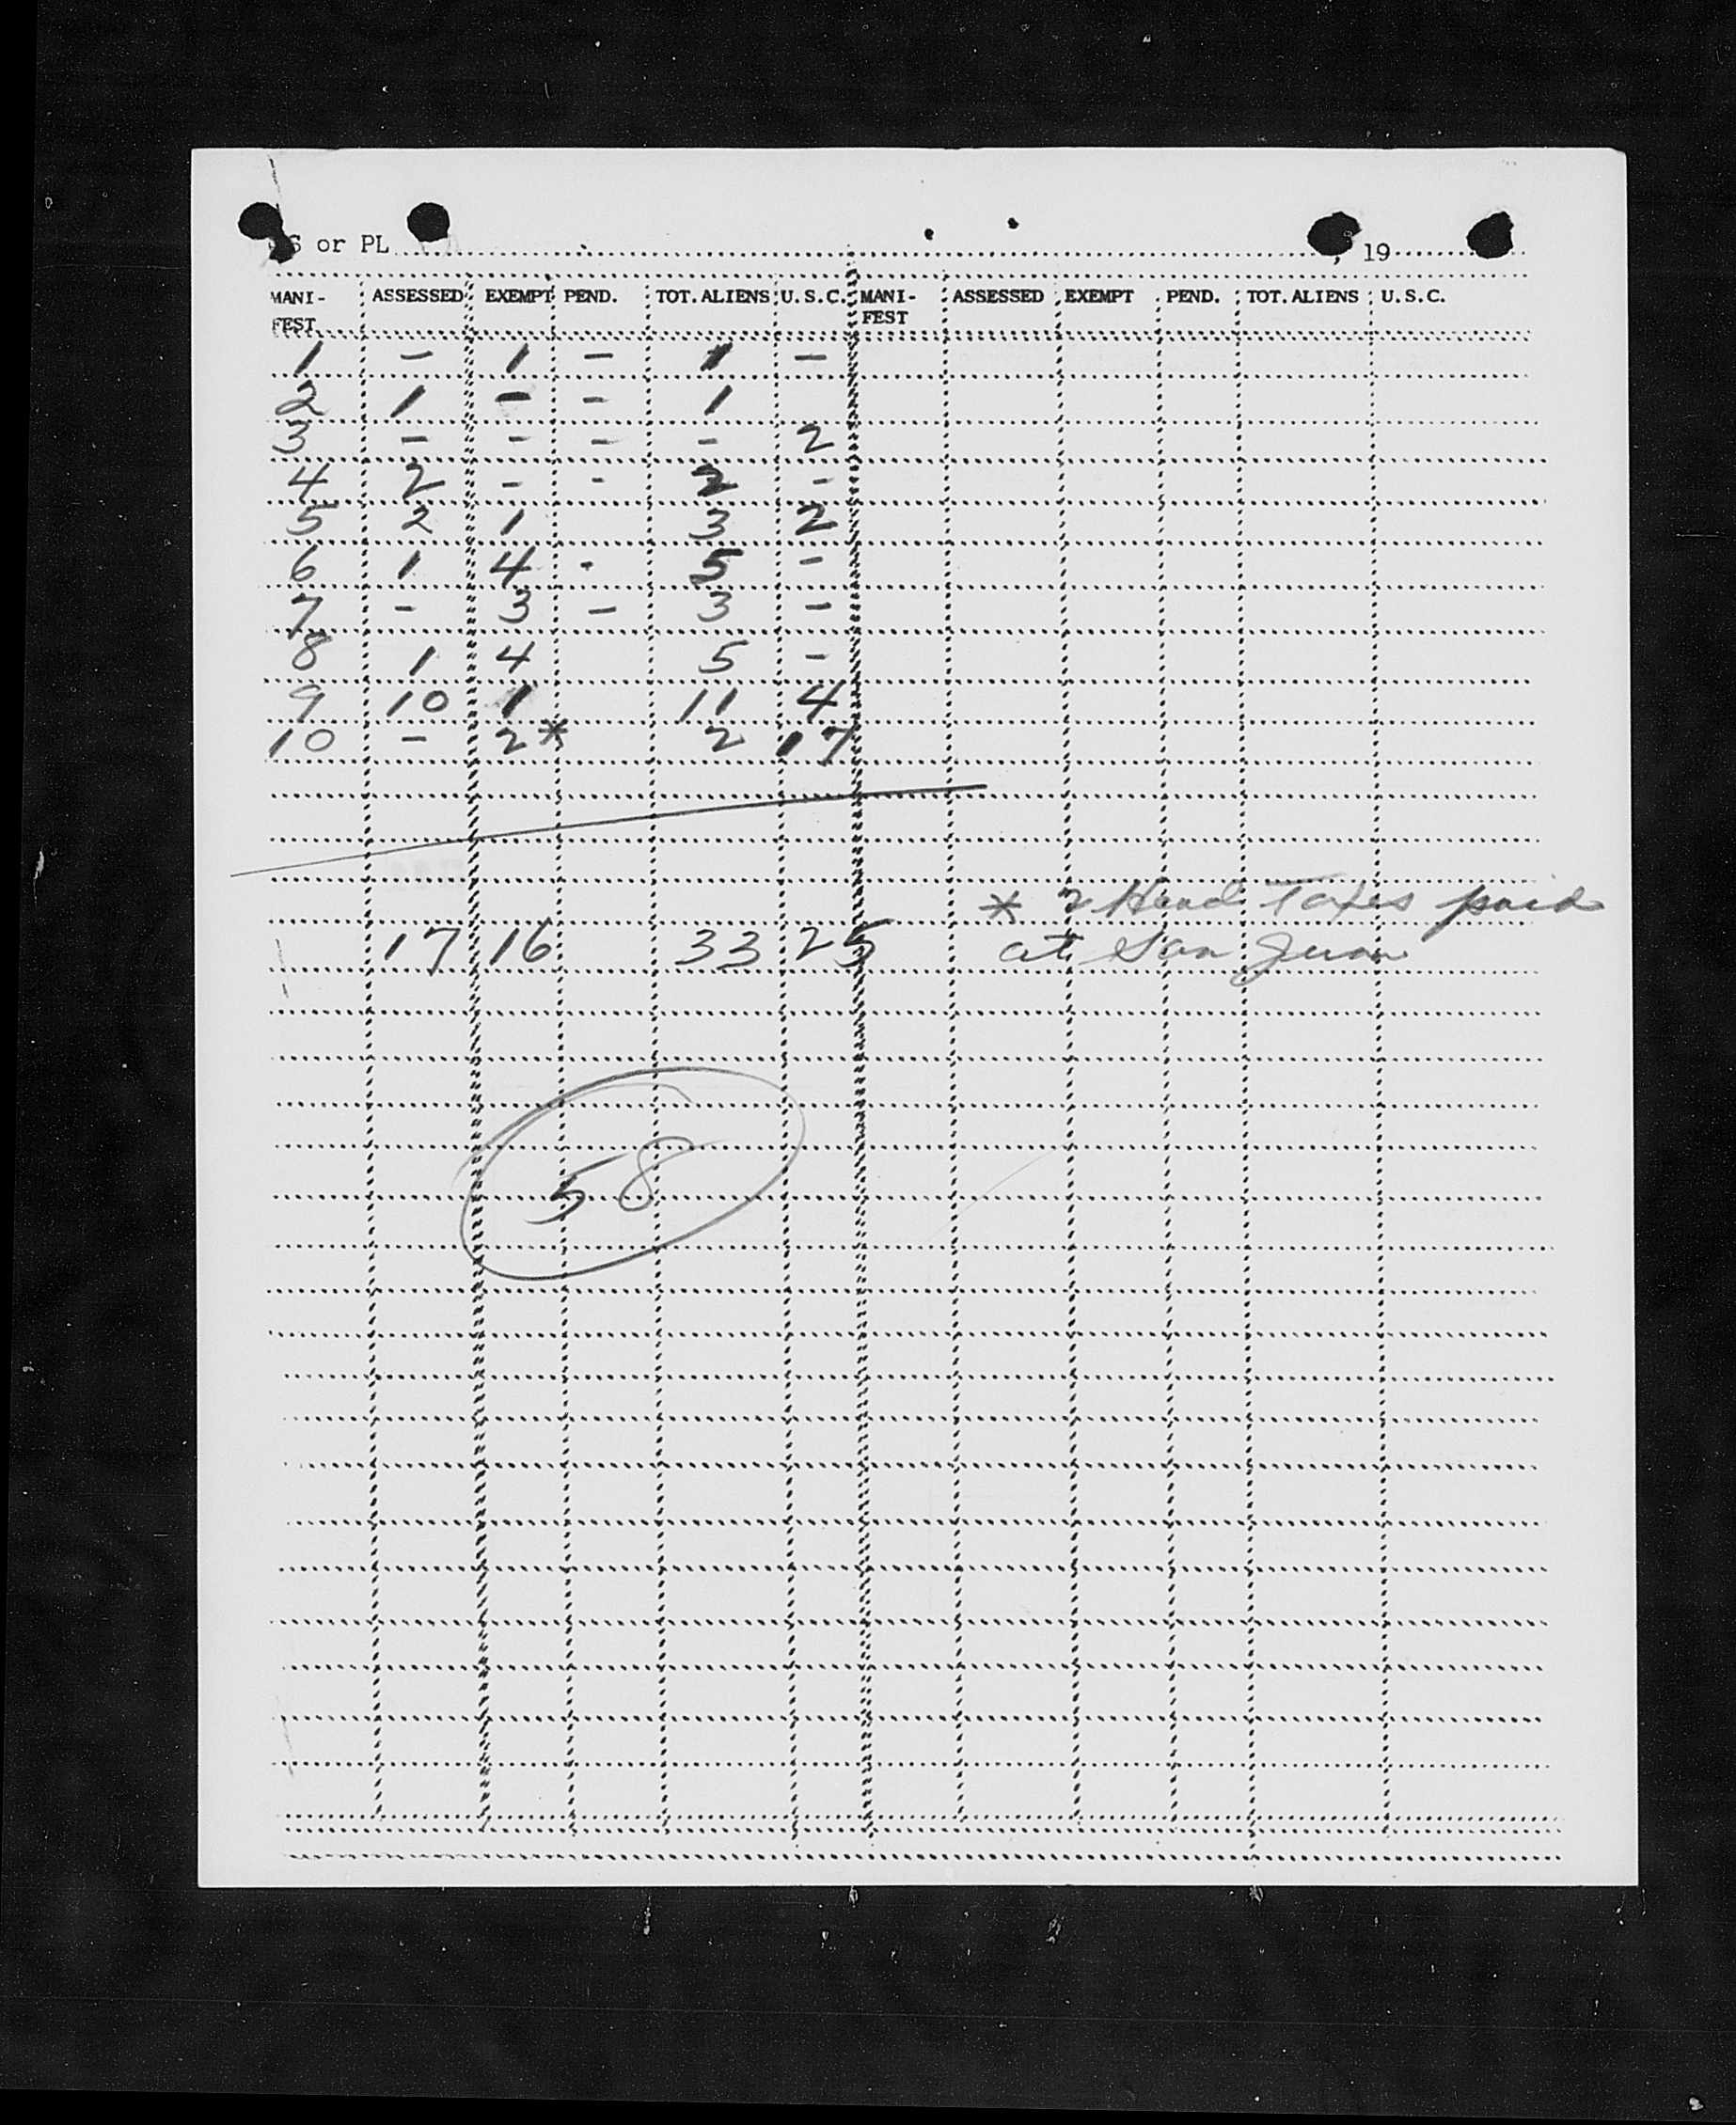 S or PL , 19
MANI-FEST ASSESSED EXEMPT PEND. TOT. ALIENS U.S.C. MANI-FEST ASSESSED EXEMPT PEND. TOT. ALIENS U.S.C.
1 - 1 - 1 -
2 1 - - 1
3 - - - - 2
4 2 - - 2 -
5 2 1 3 2
6 1 4 - 5 -
7 - 3 - 3 -
8 1 4 5 -
9 10 1 11 4
10 - 2* 2 17
* 2 Head Taxes paid
17 16 33 25 at San Juan
58